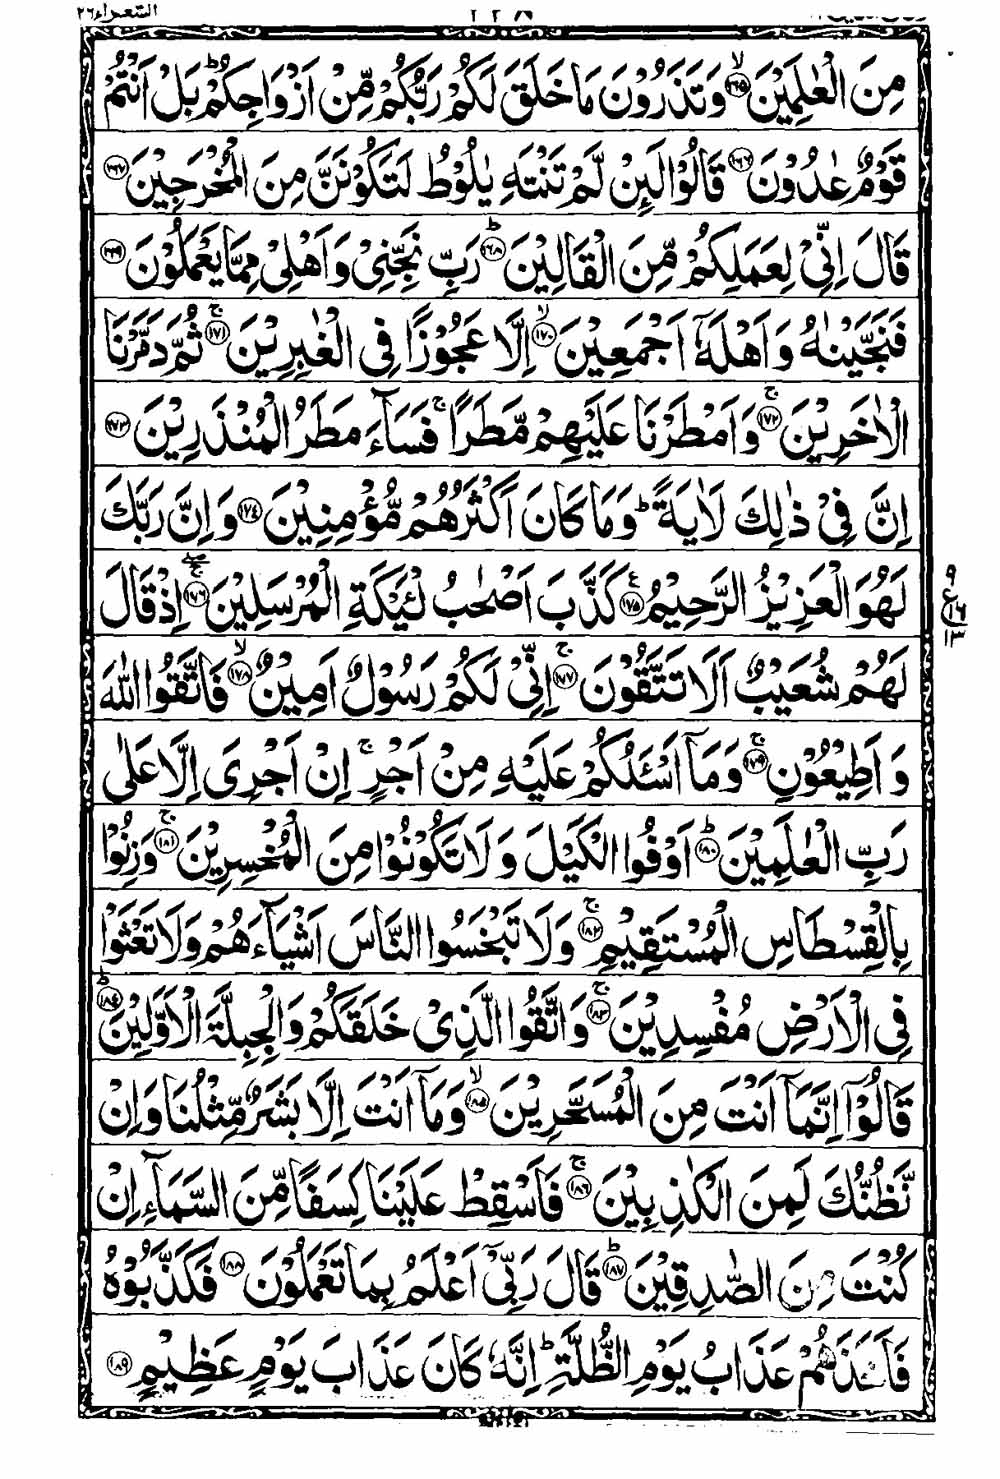 الشعراء ٢٦
مِنَ الْعٰلَمِيْنَ ۙ‏﴿۱۶۵﴾ وَ تَذَرُوْنَ مَا خَلَقَ لَكُمْ رَبُّكُمْ مِّنْ اَزْوَاجِكُمْ ؕ بَلْ اَنْتُمْ
قَوْمٌ عٰدُوْنَ ﴿۱۶۶﴾ قَالُوْا لَىِٕنْ لَّمْ تَنْتَهِ يٰلُوْطُ لَتَكُوْنَنَّ مِنَ الْمُخْرَجِيْنَ ﴿۱۶۷﴾
قَالَ اِنِّىْ لِعَمَلِكُمْ مِّنَ الْقَالِيْنَ ؕ﴿۱۶۸﴾ رَبِّ نَجِّنِىْ وَ اَهْلِىْ مِمَّا يَعْمَلُوْنَ ﴿۱۶۹﴾
فَنَجَّيْنٰهُ وَ اَهْلَهٗۤ اَجْمَعِيْنَ ۙ﴿۱۷۰﴾ اِلَّا عَجُوْزًا فِى الْغٰبِرِيْنَ ۚ﴿۱۷۱﴾ ثُمَّ دَمَّرْنَا
الْاٰخَرِيْنَ ۚ﴿۱۷۲﴾ وَ اَمْطَرْنَا عَلَيْهِمْ مَّطَرًا ۚ فَسَآءَ مَطَرُ الْمُنْذَرِيْنَ ﴿۱۷۳﴾
اِنَّ فِىْ ذٰلِكَ لَاٰيَةً ؕ وَ مَا كَانَ اَكْثَرُهُمْ مُّؤْمِنِيْنَ ﴿۱۷٤﴾ وَ اِنَّ رَبَّكَ
لَهُوَ الْعَزِيْزُ الرَّحِيْمُ ۧ﴿۱۷۵﴾ كَذَّبَ اَصْحٰبُ لْـَٔيْكَةِ الْمُرْسَلِيْنَ ۚۖ﴿۱۷۶﴾ اِذْ قَالَ
لَهُمْ شُعَيْبٌ اَلَا تَتَّقُوْنَ ۚ﴿۱۷۷﴾ اِنِّىْ لَكُمْ رَسُوْلٌ اَمِيْنٌ ۙ﴿۱۷۸﴾ فَاتَّقُوا اللّٰهَ
وَ اَطِيْعُوْنِ ۚ﴿۱۷۹﴾ وَ مَاۤ اَسْـَٔلُكُمْ عَلَيْهِ مِنْ اَجْرٍ ۚ اِنْ اَجْرِىَ اِلَّا عَلٰى
رَبِّ الْعٰلَمِيْنَ ؕ﴿۱۸۰﴾ اَوْفُوا الْكَيْلَ وَ لَا تَكُوْنُوْا مِنَ الْمُخْسِرِيْنَ ۚ﴿۱۸۱﴾ وَ زِنُوْا
بِالْقِسْطَاسِ الْمُسْتَقِيْمِ ۚ﴿۱۸۲﴾ وَ لَا تَبْخَسُوا النَّاسَ اَشْيَآءَهُمْ وَ لَا تَعْثَوْا
فِى الْاَرْضِ مُفْسِدِيْنَ ۚ﴿۱۸۳﴾ وَ اتَّقُوا الَّذِىْ خَلَقَكُمْ وَ الْجِبِلَّةَ الْاَوَّلِيْنَ ؕ﴿۱۸٤﴾
قَالُوْۤا اِنَّمَاۤ اَنْتَ مِنَ الْمُسَحَّرِيْنَ ۙ﴿۱۸۵﴾ وَ مَاۤ اَنْتَ اِلَّا بَشَرٌ مِّثْلُنَا وَ اِنْ
نَّظُنُّكَ لَمِنَ الْكٰذِبِيْنَ ۚ﴿۱۸۶﴾ فَاَسْقِطْ عَلَيْنَا كِسَفًا مِّنَ السَّمَآءِ اِنْ
كُنْتَ مِنَ الصّٰدِقِيْنَ ؕ﴿۱۸۷﴾ قَالَ رَبِّىْۤ اَعْلَمُ بِمَا تَعْمَلُوْنَ ﴿۱۸۸﴾ فَكَذَّبُوْهُ
فَاَخَذَهُمْ عَذَابُ يَوْمِ الظُّلَّةِ ؕ اِنَّهٗ كَانَ عَذَابَ يَوْمٍ عَظِيْمٍ ﴿۱۸۹﴾
٩
ع
١٦
١٣